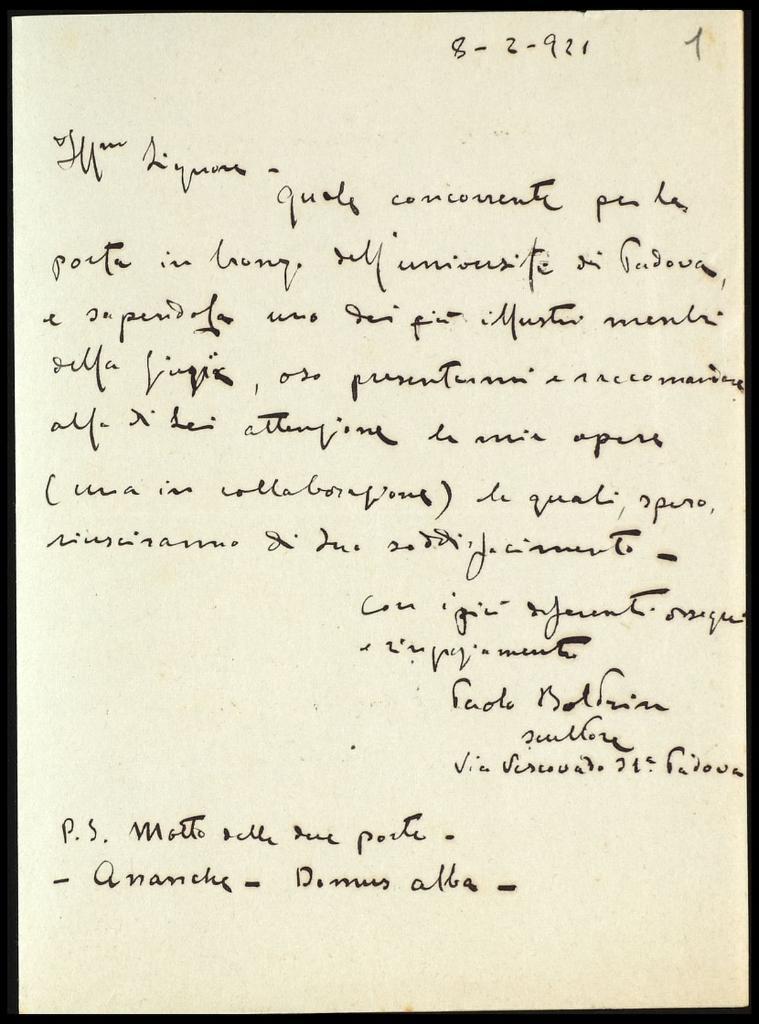 8-2-921 1
Ill.mo Signore -
Quale concorrente per la
porta in bronzo dell'università di Padova,
e sapendola uno dei più illustri membri
della Giuria, oso presentarmi e raccomandare
alla di Lei attenzione le mie opere
(una in collaborazione) le quali, spero,
riusciranno di Suo soddisfacimento -
Con i più deferenti ossequi
e ringraziamenti
Paolo Boldrin
scultore
Via Vescovado Padova
P.S. Motto delle due porte -
- Ananche - Domus alba -